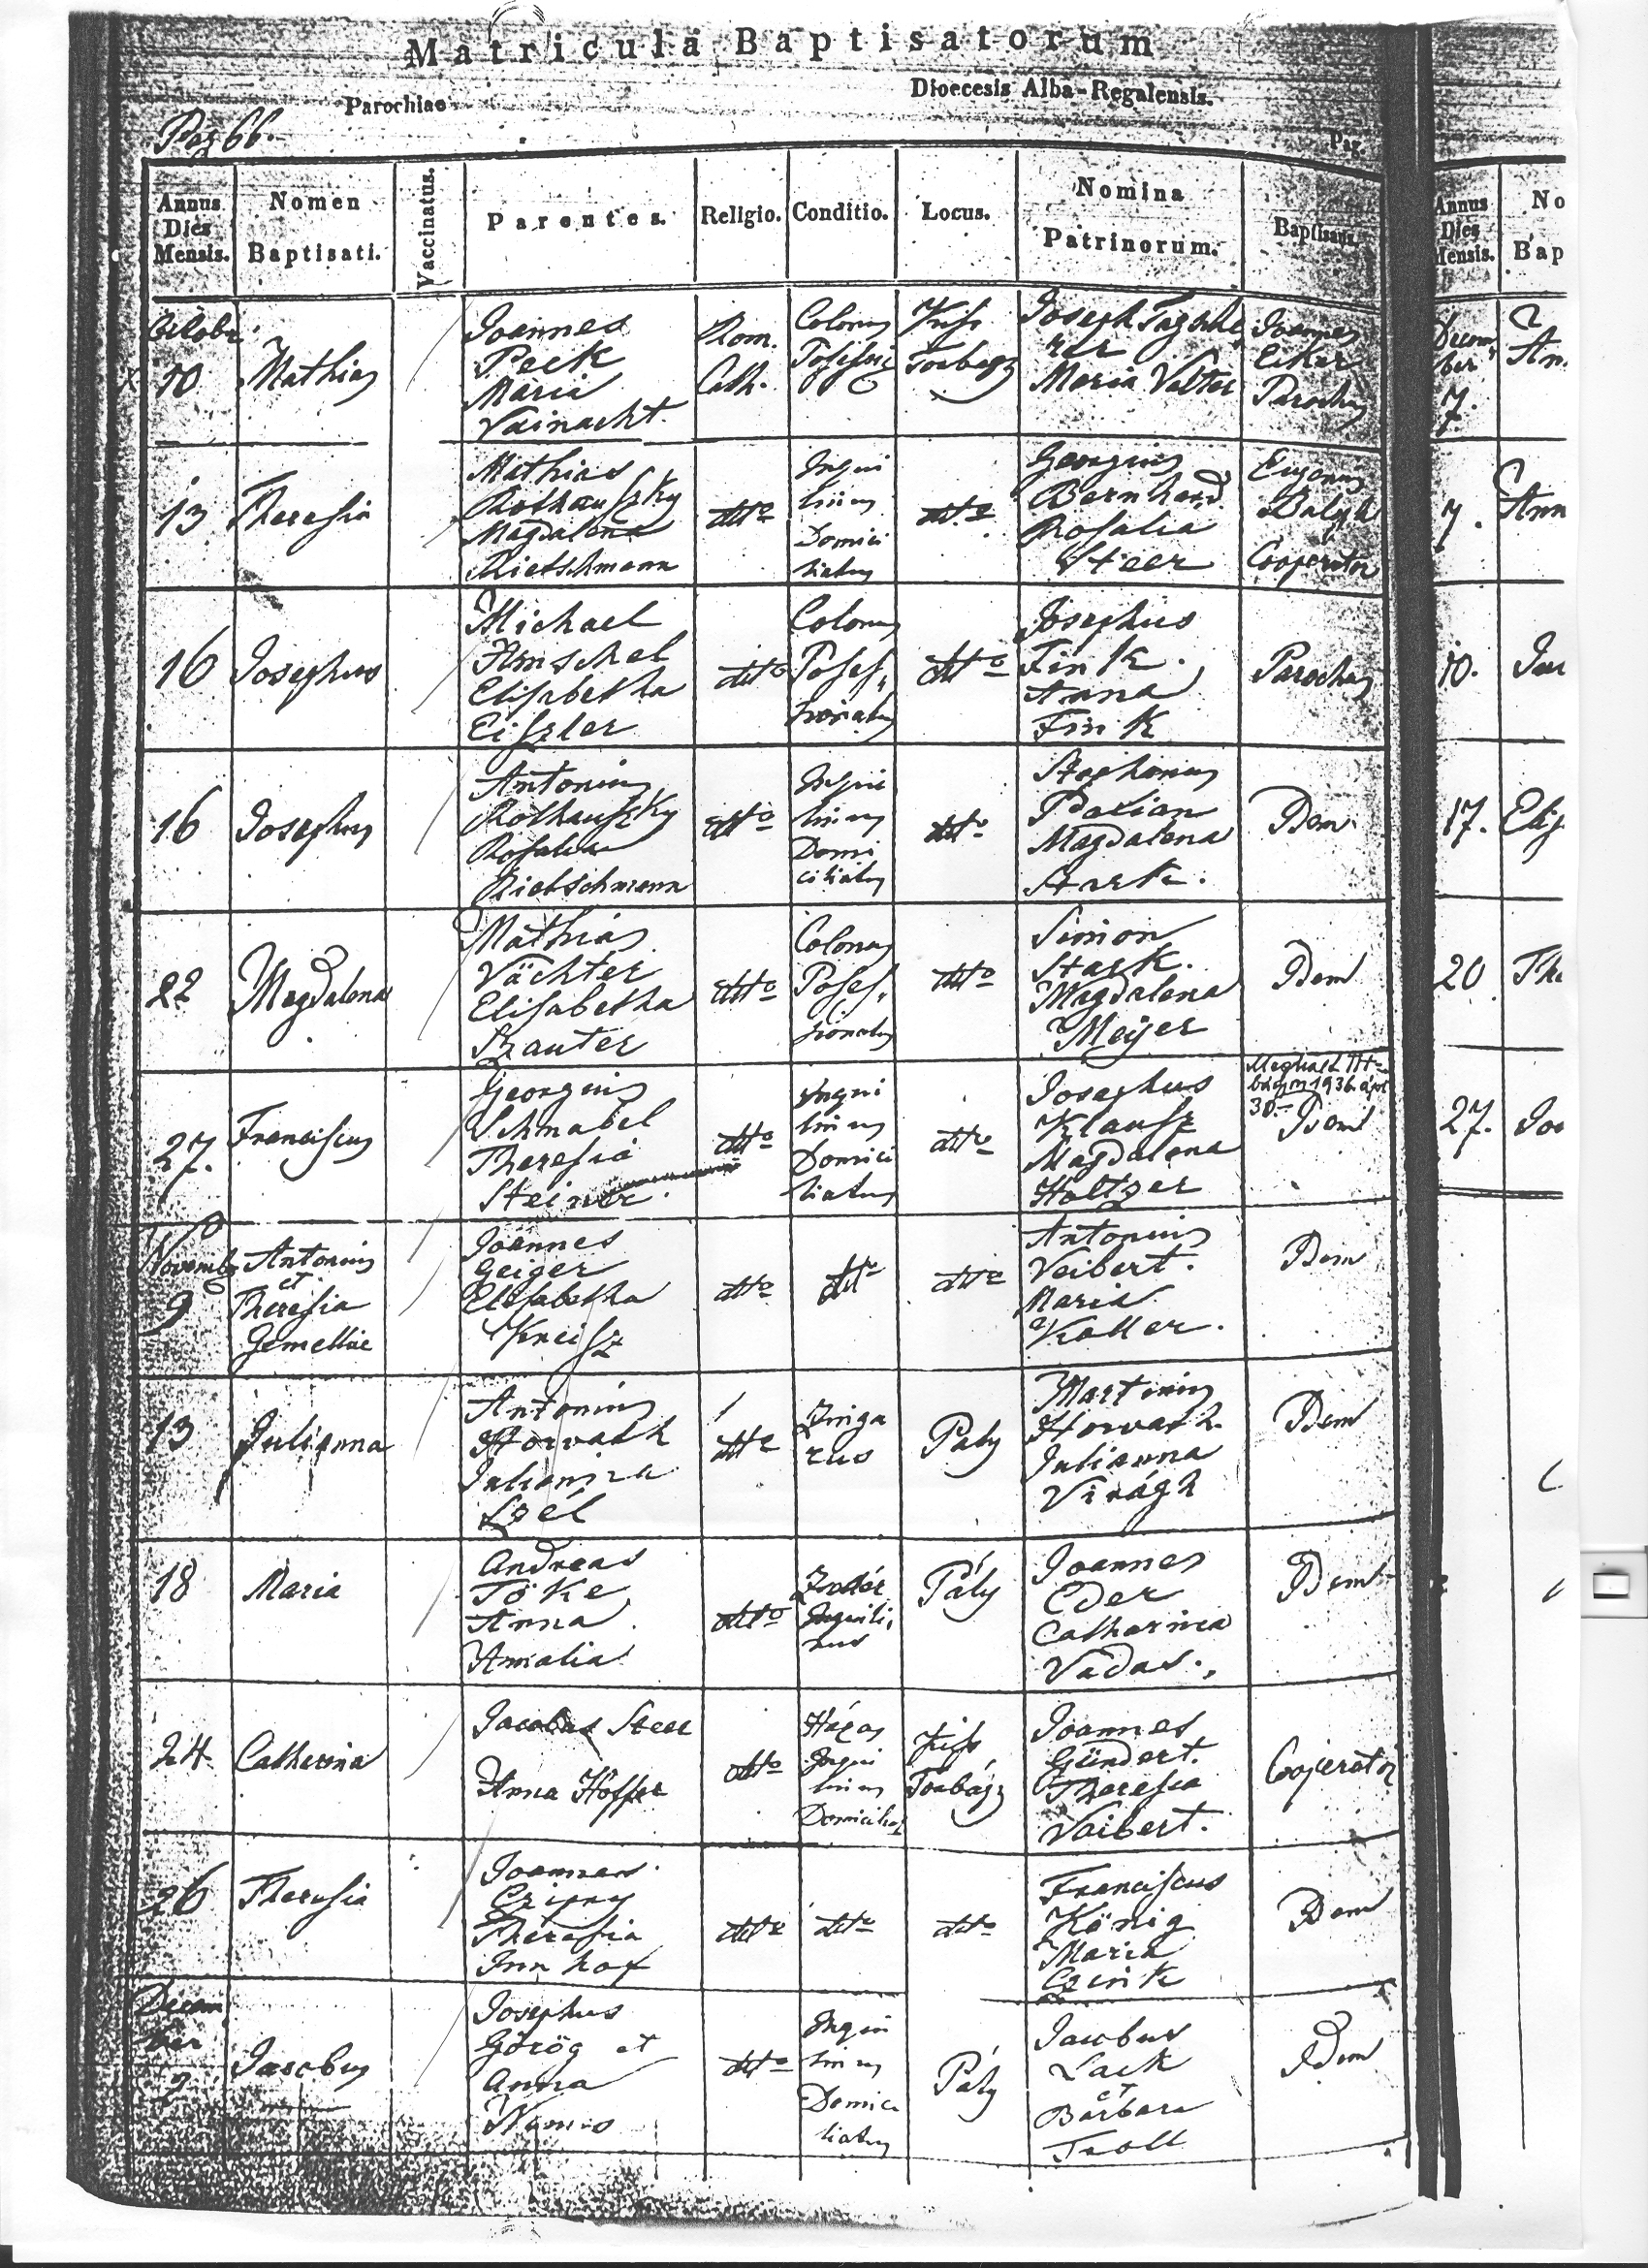 Matricula Baptisatorum
Parochiae
Dioecesis Alba-Regalensis.
Pag 66.
Pag.
Annus Dies Mensis.
Nomen Baptisati.
Vaccinatus.
Parentes.
Religio.
Conditio.
Locus.
Nomina Patrinorum.
Baptisans.
Annus Dies Mensis.
No
Bap
Octobr
10
Mathias
Joannes
Peck
Maria
Vainacht.
Rom.
Cath.
Colonus
Kiss
Torbágy
Maria Valter
Joannes
Eiker
Parochus
13
Theresia
Mathias
Rothauszky
Magdalena
Rietschmann
dtto
Inqui
linus
Domici
liatus
dtto
Georgius
Bernhard
Rosalia
Steer
Eugenius
Balyk
Cooperator
16
Josephus
Michael
Amschel
Elisabetha
Eiszler
dtto
Colonus
Posses,
sionatus
dtto
Josephus
Fink.
Anna
Fink
Parochus
16
Josephus
Antonius
Rothauszky
Rosalia
Rietschmann
dtto
Inqui
linus
Domi
ciliatus
dtto
Stephanus
Paxian
Magdalena
Stark.
Idem
22
Magdalena
Mathias
Vächter
Elisabetha
Szauter
dtto
Colonus
Posses,
sionatus
dtto
Simon
Stark.
Magdalena
Meijer
Idem
27.
Franciscus
Georgius
Schnabel
Theresia
Steiner.
dtto
Inqui
linus
Domici
liatus
dtto
Josephus
Klausz
Magdalena
Holtzer
Meghalt Tit-
bágyon 1936 ápr
30-
Idem
Novemb
9
Antonius
et
Theresia
Gemellae
Joannes
Geiger
Elisabetha
Kreisz
dtto
dtto
dtto
Antonius
Veibert.
Maria
Koller.
Idem
13
Julianna
Antonius
Horvath
Julianna
Szél
dtto
Zinga
rus
Páty
Martinus
Horvath.
Julianna
Virágh
Idem
18
Maria
Andreas
Töke
Anna
Amalia
dtto
Inquili,
nus
Páty
Joannes
Eder
Catharina
Vadas.
Idem
24
Catharina
Jacobus Steer
Anna Hoffer
dtto
Házas
Inqui
linus
Domiciliat
Kiss
Torbágy
Joannes
Gündert.
Theresia
Vaibert.
Cooperator
26
Theresia
Joannes
Theresia
Innhof
dtto
dtto
dtto
Franciscus
König
Maria
Czink
Idem
Decem
ber
Jacobus
Josephus
Görög et
Anna
dtto
Inqui
linus
Domici
liatus
Páty
Jacobus
Lack
et
Barbara
Troll
Idem
Decem
ber
7.
An.
7.
Ann
10.
17.
Elis
20
The
27.